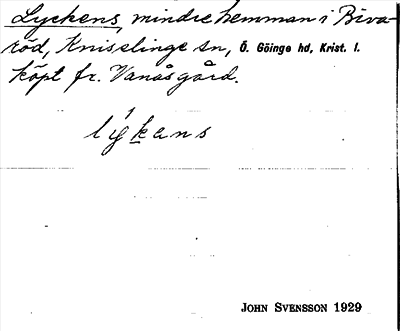 Lyckens, mindre hemman i Biva-
röd, Knisslinge sn, Ö. Göinge hd, Krist. l.
köpt fr. Vanås gård.
lýkans
JOHN SVENSSON 1929